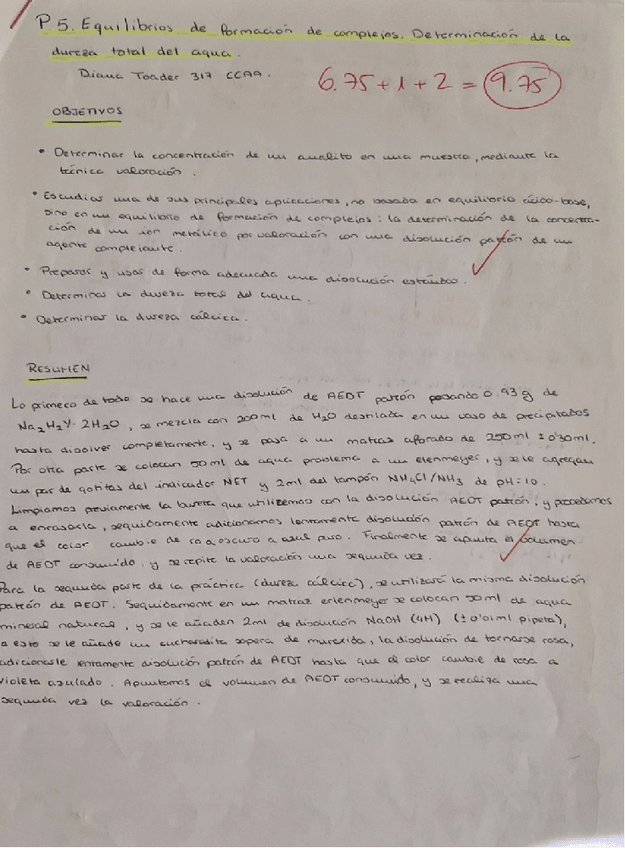 P5. Equilibrios de formación de complejos. Determinación de la
dureza total del agua.
Diana Toader 317 CCAA.
6.75 + 1 + 2 = 9.75
OBJETIVOS
• Determinar la concentración de un analito en una muestra, mediante la
técnica valoración.
• Estudiar una de sus principales aplicaciones, no basada en equilibrio ácido-base,
sino en un equilibrio de formación de complejos: la determinación de la concentra-
ción de un ion metálico por valoración con una disolución patrón de un
agente complejante.
• Preparar y usar de forma adecuada una disolución estándar.
• Determinar la dureza total del agua.
• Determinar la dureza cálcica.
RESUMEN
Lo primero de todo se hace una disolución de AEDT patrón pesando 0.93 g de
Na₂H₂Y·2H₂O, se mezcla con 200ml de H₂O destilada en un vaso de precipitados
hasta disolver completamente, y se pasa a un matraz aforado de 250ml ± 0'30ml.
Por otra parte se colocan 50ml de agua problema a un erlenmeyer, y se le agregan
un par de gotitas del indicador NET y 2ml del tampón NH₄Cl/NH₃ de pH=10.
Limpiamos previamente la bureta que utilizemos con la disolución AEDT patrón, y procedemos
a enrasarla, seguidamente adicionamos lentamente disolución patrón de AEDT hasta
que el color cambie de rosa oscuro a azul puro. Finalmente se apunta el volumen
de AEDT consumido, y se repite la valoración una segunda vez.
Para la segunda parte de la práctica (dureza cálcica), se utilizará la misma disolución
patrón de AEDT. Seguidamente en un matraz erlenmeyer se colocan 50ml de agua
mineral natural, y se le añaden 2ml de disolución NaOH (4M) (±0'01ml pipeta),
a esto se le añade un cucharadita sopera de murexida, la disolución de tornarse rosa,
adicionarle lentamente disolución patrón de AEDT hasta que el color cambie de rosa a
violeta azulado. Apuntamos el volumen de AEDT consumido, y se realiza una
segunda vez la valoración.